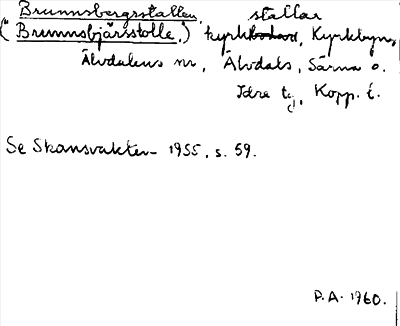 Brunnsbergsstallen, stallar
("Brunnsbjärsstolle,") kyrk, Kyrkbyn,
Älvdalens sn, Älvdals, Särna o.
Idre tg, Kopp. l.
Se Skansvakten 1955, s. 59.
P.A. 1960.